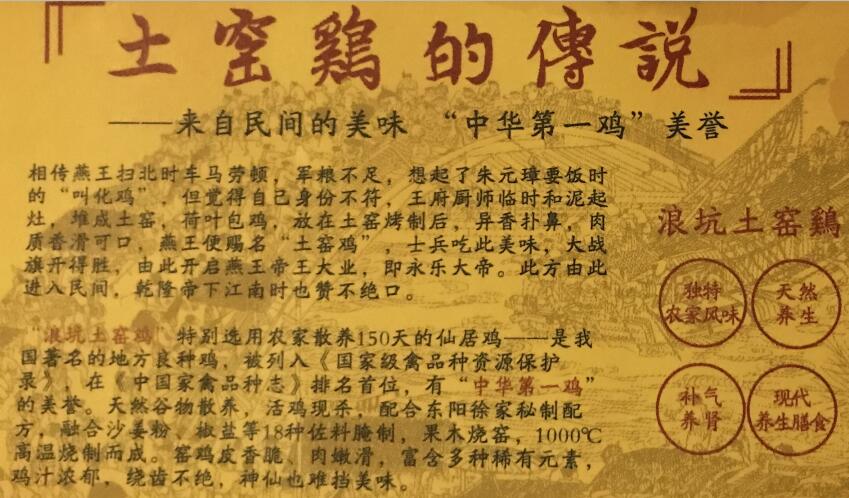 土窑鷄的傳説
——来自民间的美味 “中华第一鸡”美誉
相传燕王扫北时车马劳顿，军粮不足，想起了朱元璋要饭时
的“叫化鸡”，但觉得自己身份不符，王府厨师临时和泥起
灶，堆成土窑，荷叶包鸡，放在土窑烤制后，异香扑鼻，肉
质香滑可口，燕王便赐名“土窑鸡”，士兵吃此美味，大战
旗开得胜，由此开启燕王帝王大业，即永乐大帝。此方由此
进入民间，乾隆帝下江南时也赞不绝口。
“浪坑土窑鸡”特别选用农家散养150天的仙居鸡——是我
国著名的地方良种鸡，被列入《国家级禽品种资源保护
录》，在《中国家禽品种志》排名首位，有“中华第一鸡”
的美誉。天然谷物散养，活鸡现杀，配合东阳徐家秘制配
方，融合沙姜粉、椒盐等18种佐料腌制，果木烧窑，1000℃
高温烧制而成。窑鸡皮香脆、肉嫩滑，富含多种稀有元素，
鸡汁浓郁，绕齿不绝，神仙也难挡美味。
浪坑土窑鷄
独特
农家风味
天然
养生
补气
养肾
现代
养生膳食